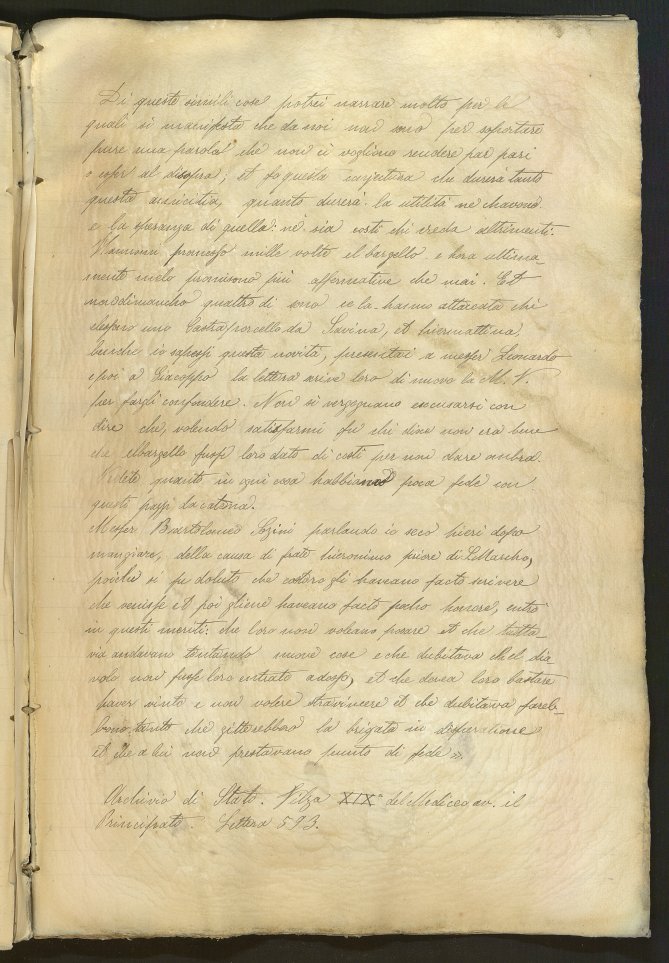 Di queste simili cose potrei narrare molte per le
quali si manifesta che da noi non sono per sopportare
pure una parola che non ci vogliono rendere par pari
o esser al disopra; et fo questa conjectura che durerà tanto
questa amicitia, quanto durerà la utilità ne chavono
e la speranza di quella: nè sia costì chi creda altrimenti.
promesso mille volte il bargello e hora ultima-
mente melo promisono più affirmative che mai. Et
nondimancho quattro dì sono ce la hanno attaccata chi
uno da Savina, et hiermattina
benchè io sapessi questa novità, presentai a messer Leonardo
e poi a Giacoppo la lettera loro di nuovo la M. V.
per fargli confondere. Non si vergognano excusarsi con
dire che, volendo satisfarmi fu chi disse non era bene
che elbargello fussi loro dato di costì per non dare ombra.
Vedete quanto in ogni cosa habbiano poca fede con
questi pazzi da catena.
Messer Bartolomeo Sozini parlando io seco hieri dopo
mangiare, della causa di frate Hieronimo priore di S. Marcho,
poichè si fu doluto che costoro gli haveano facto scrivere
che venisse et poi gliene haveano facto pocho honore, entrò
in questi meriti: che loro non voleano posare et che tutta-
via andavano tentando nuove cose e che dubitava che il dia-
volo non fussi loro entrato adosso, et che dovea loro bastare
haver vinto e non volere stravincere et che dubitava fareb-
bono tanto che gitterebbero la brigata in disperatione
et che a lui non prestavano punto di fede »
Archivio di Stato. Filza XIXª del Mediceo av. il
Principato. Lettera 593.